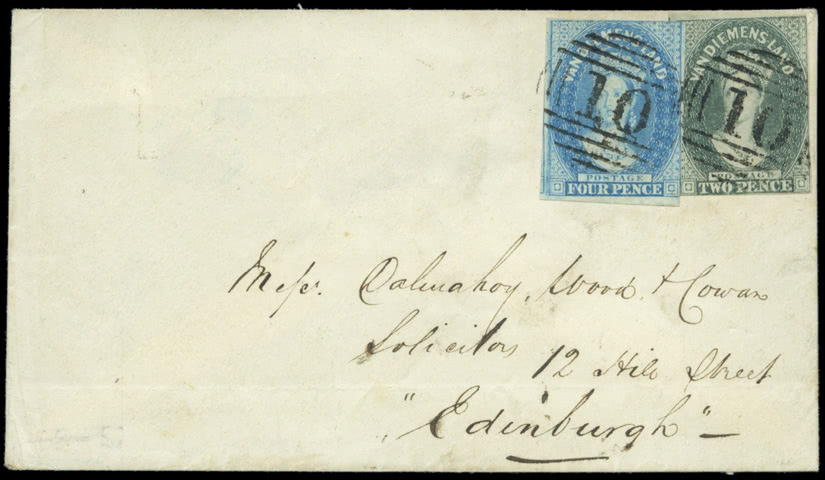 VAN DIEMENS LAND
10
POSTAGE
FOUR PENCE
VAN DIEMENS LAND
10
POSTAGE
TWO PENCE
Messrs. Dalmahoy, Wood & Cowan
Solicitors
12 Hill Street
"Edinburgh"